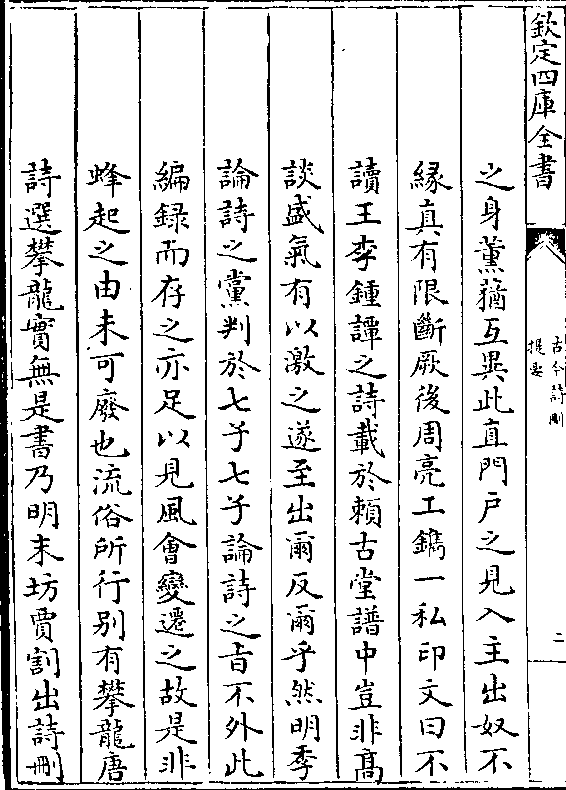 欽定四庫全書
古今詩刪
提要
二
之身薰蕕互異此直門户之見入主出奴不
緣真有限斷厥後周亮工鐫一私印文曰不
讀王李鍾譚之詩載於頼古堂譜中豈非髙
談盛氣有以激之遂至出爾反爾乎然明季
論詩之黨判於七子七子論詩之㫖不外此
編録而存之亦足以見風會變遷之故是非
蜂起之由未可廢也流俗所行别有攀龍唐
詩選攀龍實無是書乃明末坊賈割出詩刪